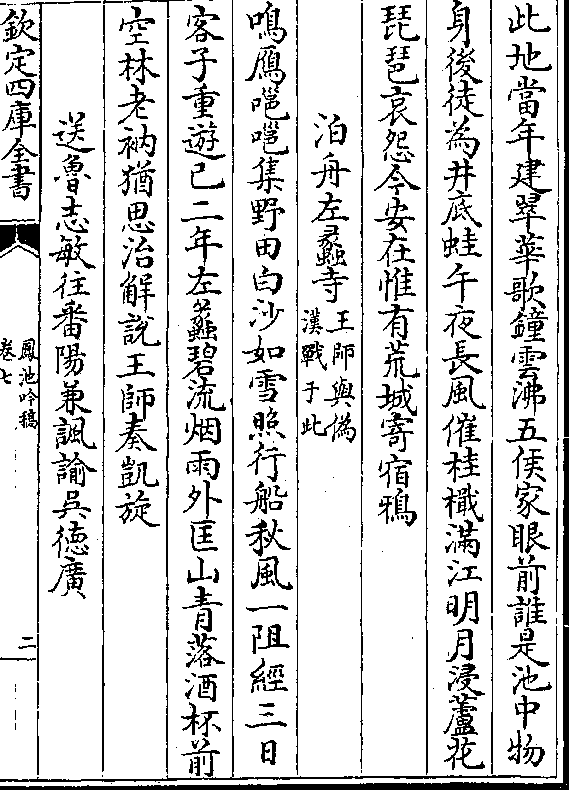 此地當年建翠華歌鐘雲沸五侯家眼前誰是池中物
身後徒為井底蛙午夜長風催桂檝滿江明月浸蘆花
琵琶哀怨今安在惟有荒城寄宿鴉
泊舟左蠡寺王師與僞漢戰于此
鳴鴈嗈嗈集野田白沙如雪照行船秋風一阻經三日
客子重遊已二年左蠡碧流烟雨外匡山青落酒杯前
空林老衲猶思治解說王師奏凱旋
送魯志敏往番陽兼諷諭吳德廣
欽定四庫全書
鳳池吟稿
卷七
二